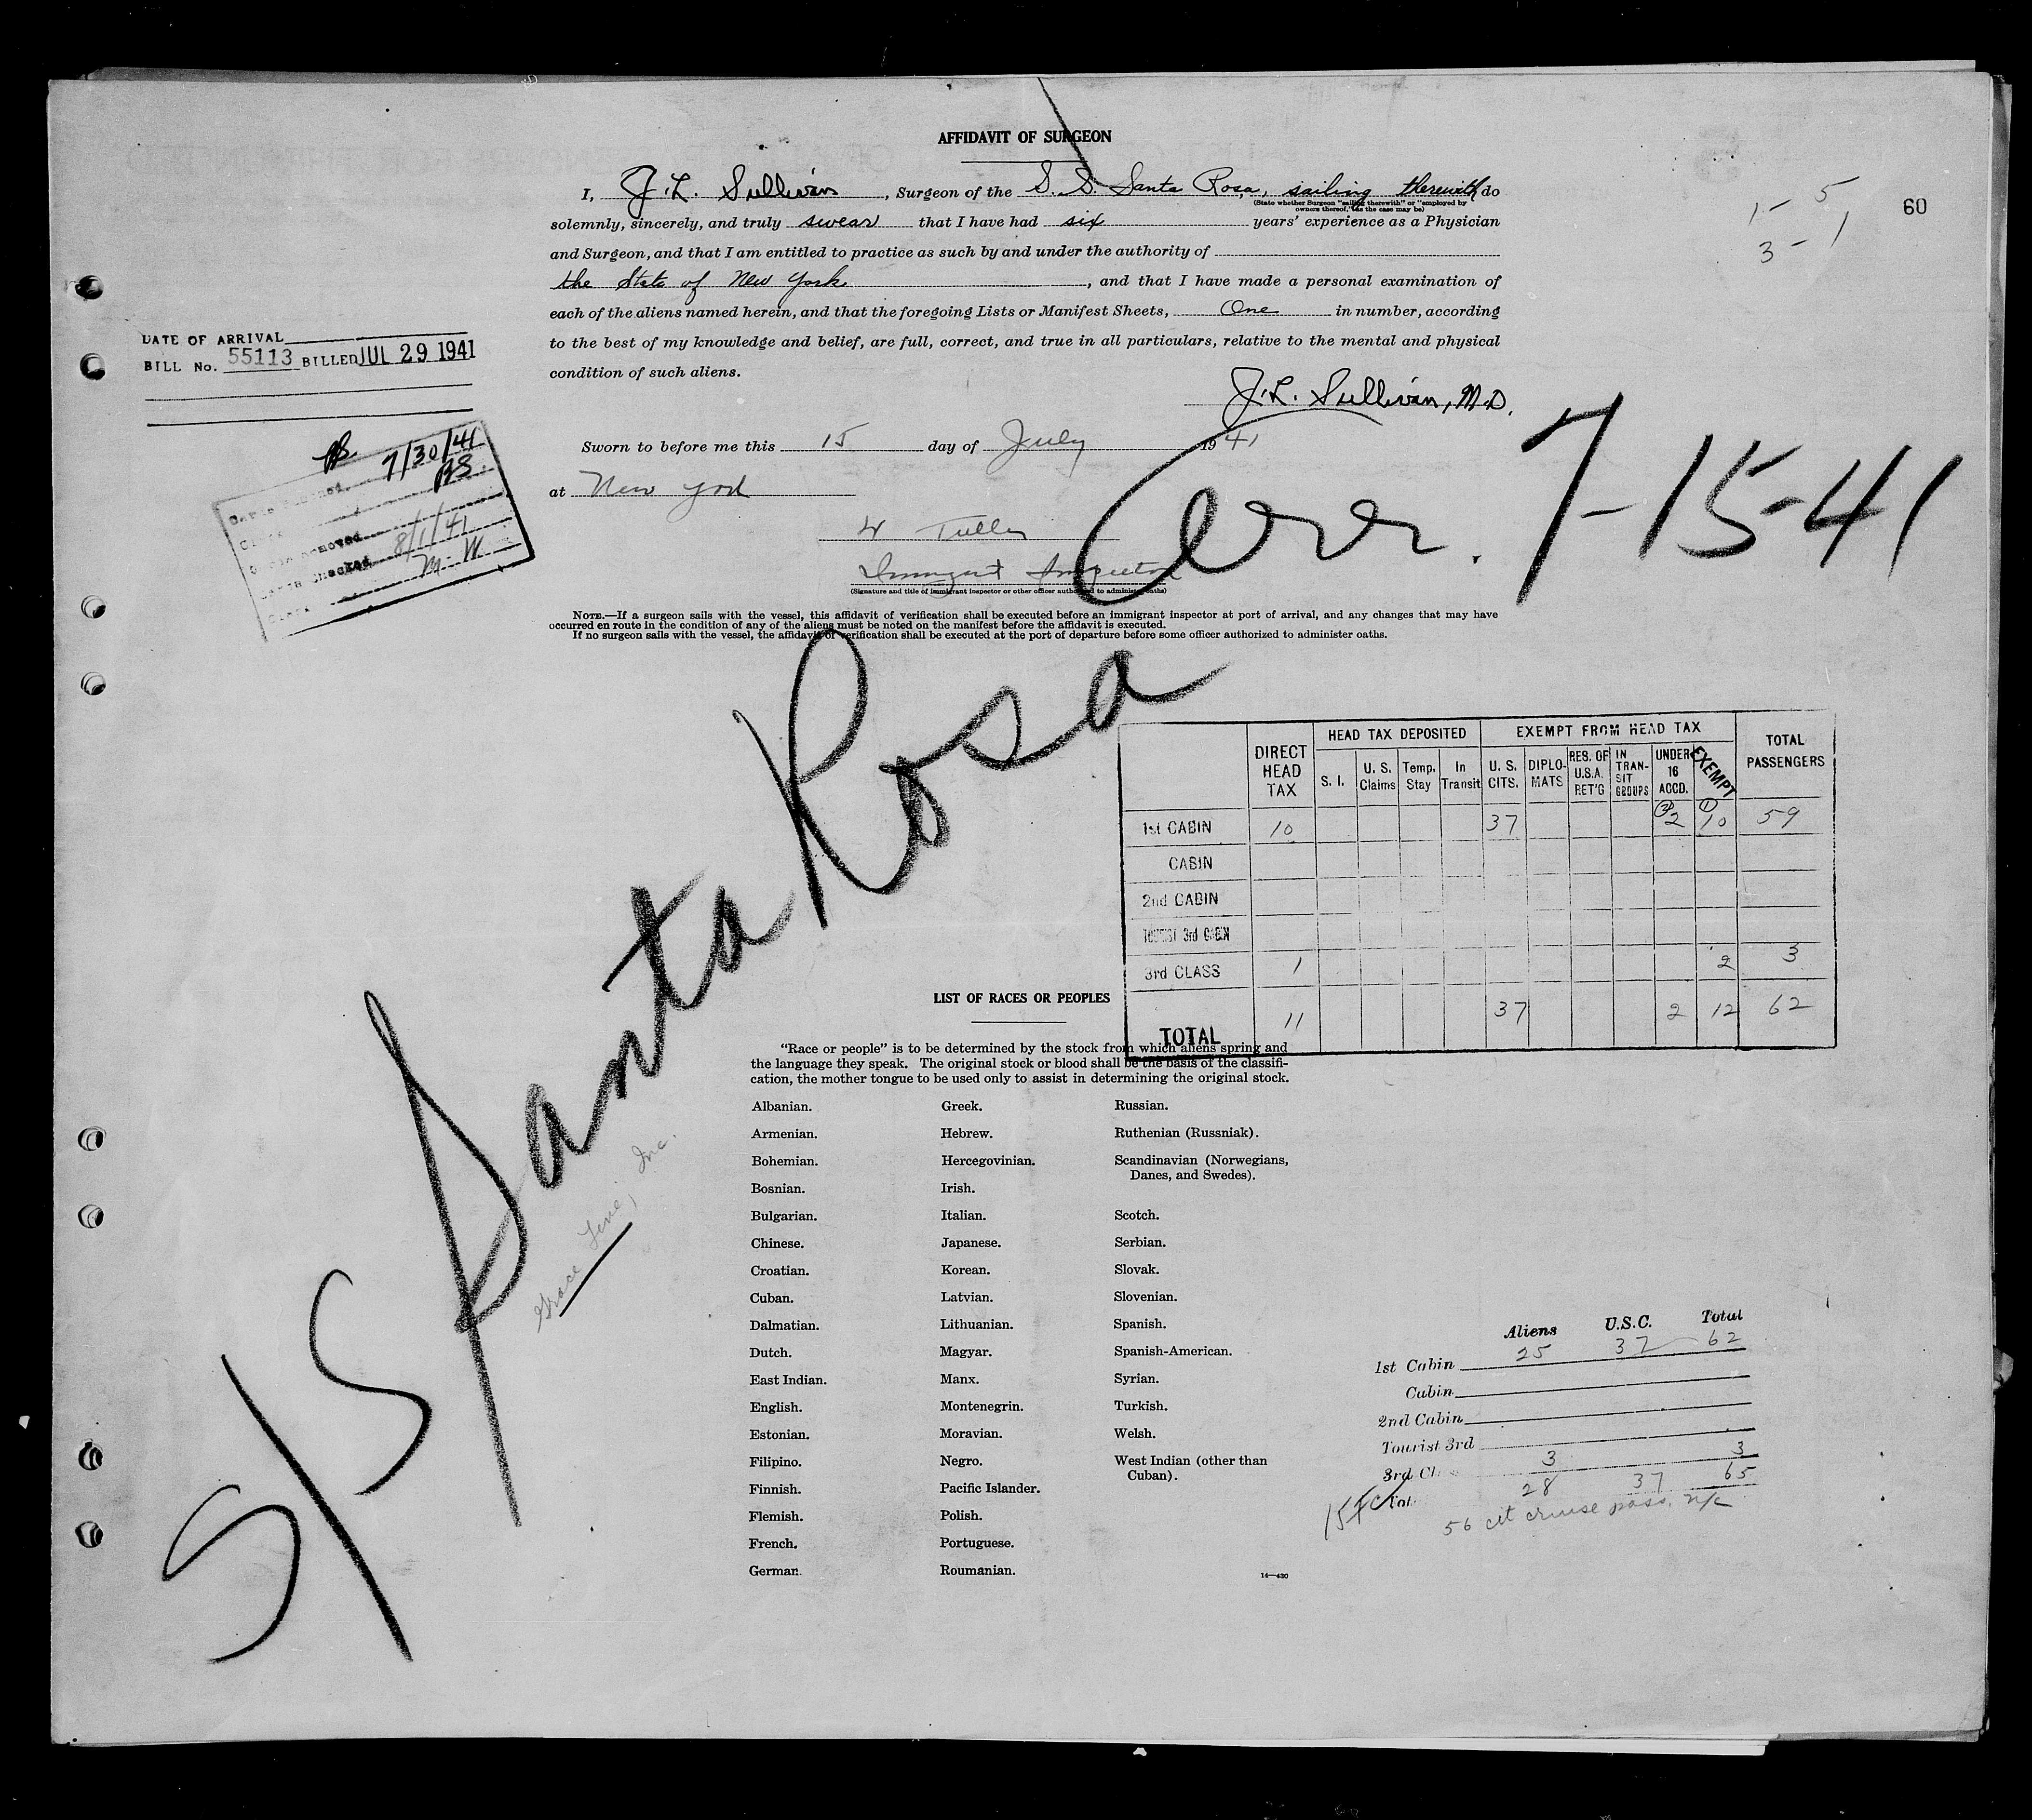 AFFIDAVIT OF SURGEON
I, J. L. Sullivan, Surgeon of the S. S. Santa Rosa, sailing therewith do
(State whether Surgeon "sailing therewith" or "employed by
owners thereof," as the case may be)
solemnly, sincerely, and truly swear that I have had six years' experience as a Physician
and Surgeon, and that I am entitled to practice as such by and under the authority of
the State of New York, and that I have made a personal examination of
each of the aliens named herein, and that the foregoing Lists or Manifest Sheets, One in number, according
to the best of my knowledge and belief, are full, correct, and true in all particulars, relative to the mental and physical
condition of such aliens.
J. L. Sullivan, M.D.
Sworn to before me this 15 day of July 1941
at New York
W Tulley
Immigrant Inspector
(Signature and title of immigrant inspector or other officer authorized to administer oaths)
1 - 5
3 - 1
60
DATE OF ARRIVAL
BILL No. 55113 BILLED JUL 29 1941
7/30/41
Checked 8/1/41
M. W.
Arr. 7-15-41
NOTE.—If a surgeon sails with the vessel, this affidavit of verification shall be executed before an immigrant inspector at port of arrival, and any changes that may have
occurred en route in the condition of any of the aliens must be noted on the manifest before the affidavit is executed.
If no surgeon sails with the vessel, the affidavit of verification shall be executed at the port of departure before some officer authorized to administer oaths.
S/S Santa Rosa
Grace Line, Inc.
DIRECT HEAD TAX HEAD TAX DEPOSITED EXEMPT FROM HEAD TAX TOTAL PASSENGERS
S. I. U. S. Claims Temp. Stay In Transit U. S. CITS. DIPLOMATS RES. OF U.S.A. RET'G IN TRANSIT GROUPS UNDER 16 ACCD. EXEMPT
1st CABIN 10 37 2 10 59
CABIN
2nd CABIN
TOURIST 3rd CABIN
3rd CLASS 1 2 3
TOTAL 11 37 2 12 62
LIST OF RACES OR PEOPLES
"Race or people" is to be determined by the stock from which aliens spring and
the language they speak. The original stock or blood shall be the basis of the classifi-
cation, the mother tongue to be used only to assist in determining the original stock.
Albanian.
Armenian.
Bohemian.
Bosnian.
Bulgarian.
Chinese.
Croatian.
Cuban.
Dalmatian.
Dutch.
East Indian.
English.
Estonian.
Filipino.
Finnish.
Flemish.
French.
German.
Greek.
Hebrew.
Hercegovinian.
Irish.
Italian.
Japanese.
Korean.
Latvian.
Lithuanian.
Magyar.
Manx.
Montenegrin.
Moravian.
Negro.
Pacific Islander.
Polish.
Portuguese.
Roumanian.
Russian.
Ruthenian (Russniak).
Scandinavian (Norwegians,
Danes, and Swedes).
Scotch.
Serbian.
Slovak.
Slovenian.
Spanish.
Spanish-American.
Syrian.
Turkish.
Welsh.
West Indian (other than
Cuban).
14—430
Aliens U.S.C. Total
1st Cabin 25 37 62
Cabin
2nd Cabin
Tourist 3rd
3rd Cl 3 3
Tot. 28 37 65
56 cit cruise pass. n/c